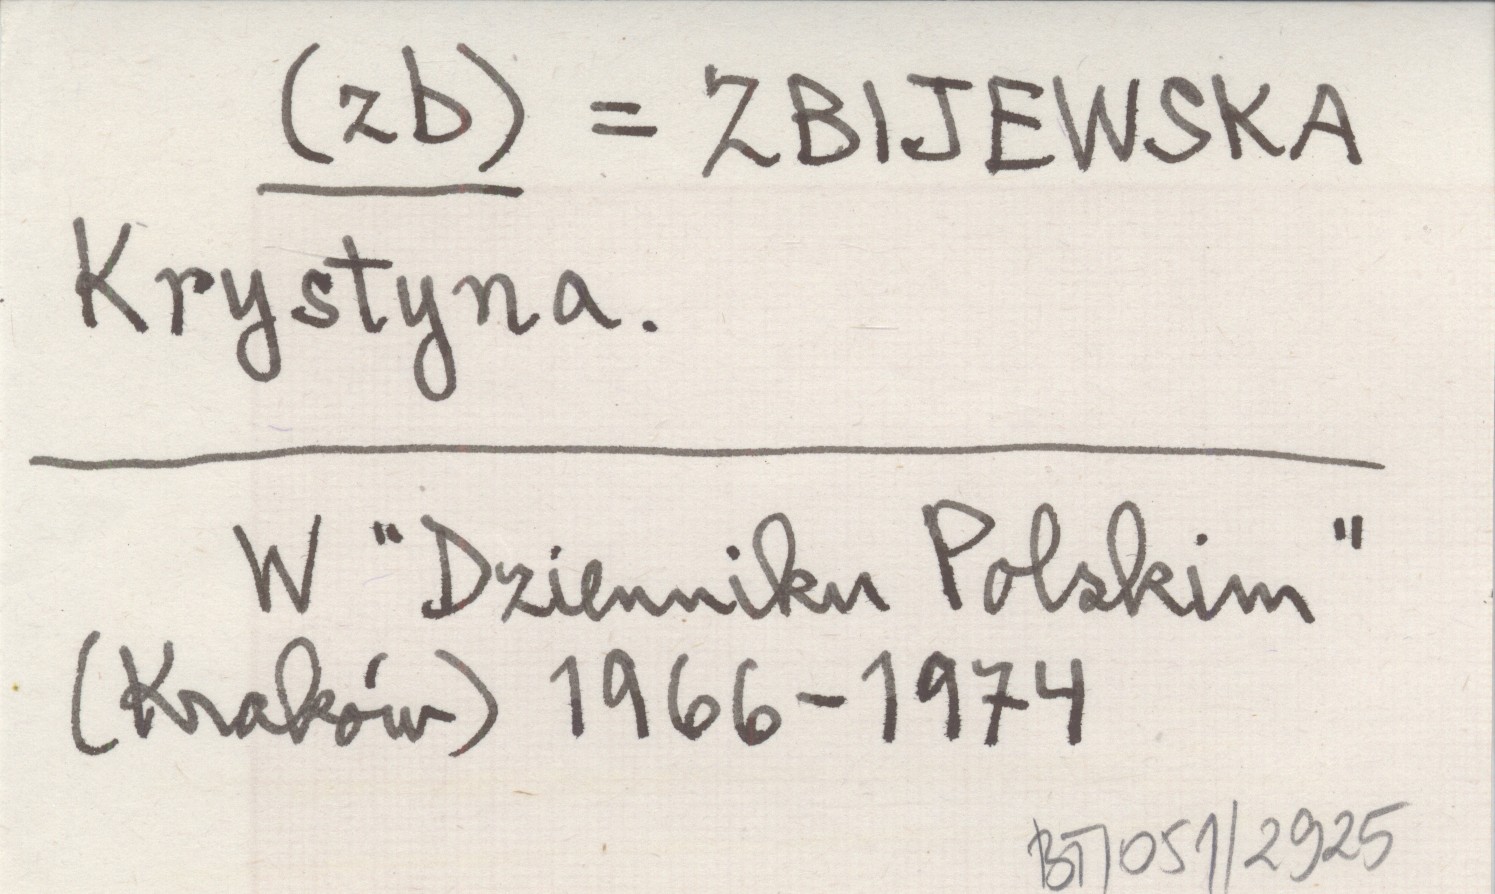 (zb) = ZBIJEWSKA
Krystyna.
W "Dzienniku Polskim"
(Kraków) 1966-1974
BT/051/2925